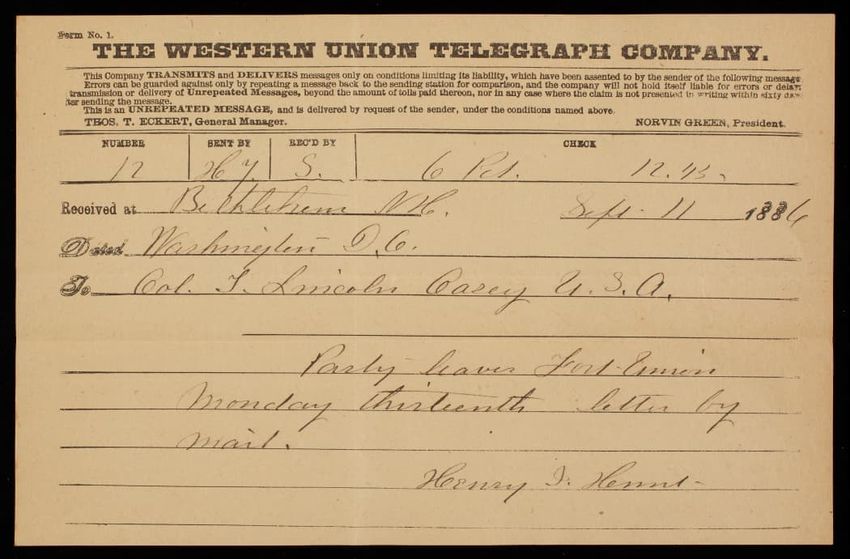 Form No. 1.
THE WESTERN UNION TELEGRAPH COMPANY.
This Company TRANSMITS and DELIVERS messages only on conditions limiting its liability, which have been assented to by the sender of the following message
Errors can be guarded against only by repeating a message back to the sending station for comparison, and the company will not hold itself liable for errors or delays
transmission or delivery of Unrepeated Messages, beyond the amount of tolls paid thereon, nor in any case where the claim is not presented in writing within sixty days
after sending the message.
This is an UNREPEATED MESSAGE, and is delivered by request of the sender, under the conditions named above.
THOS. T. ECKERT, General Manager. NORVIN GREEN, President.
NUMBER SENT BY REC'D BY CHECK
12 S. 6 Pd. 12.45
Received at Bethlehem N.H. Sept. 11 1886
Dated Washington D.C.
To Col. T. Lincoln Casey U.S.A.
Party leaves Fort Union
Monday thirteenth letter by
mail.
Henry J. Hunt